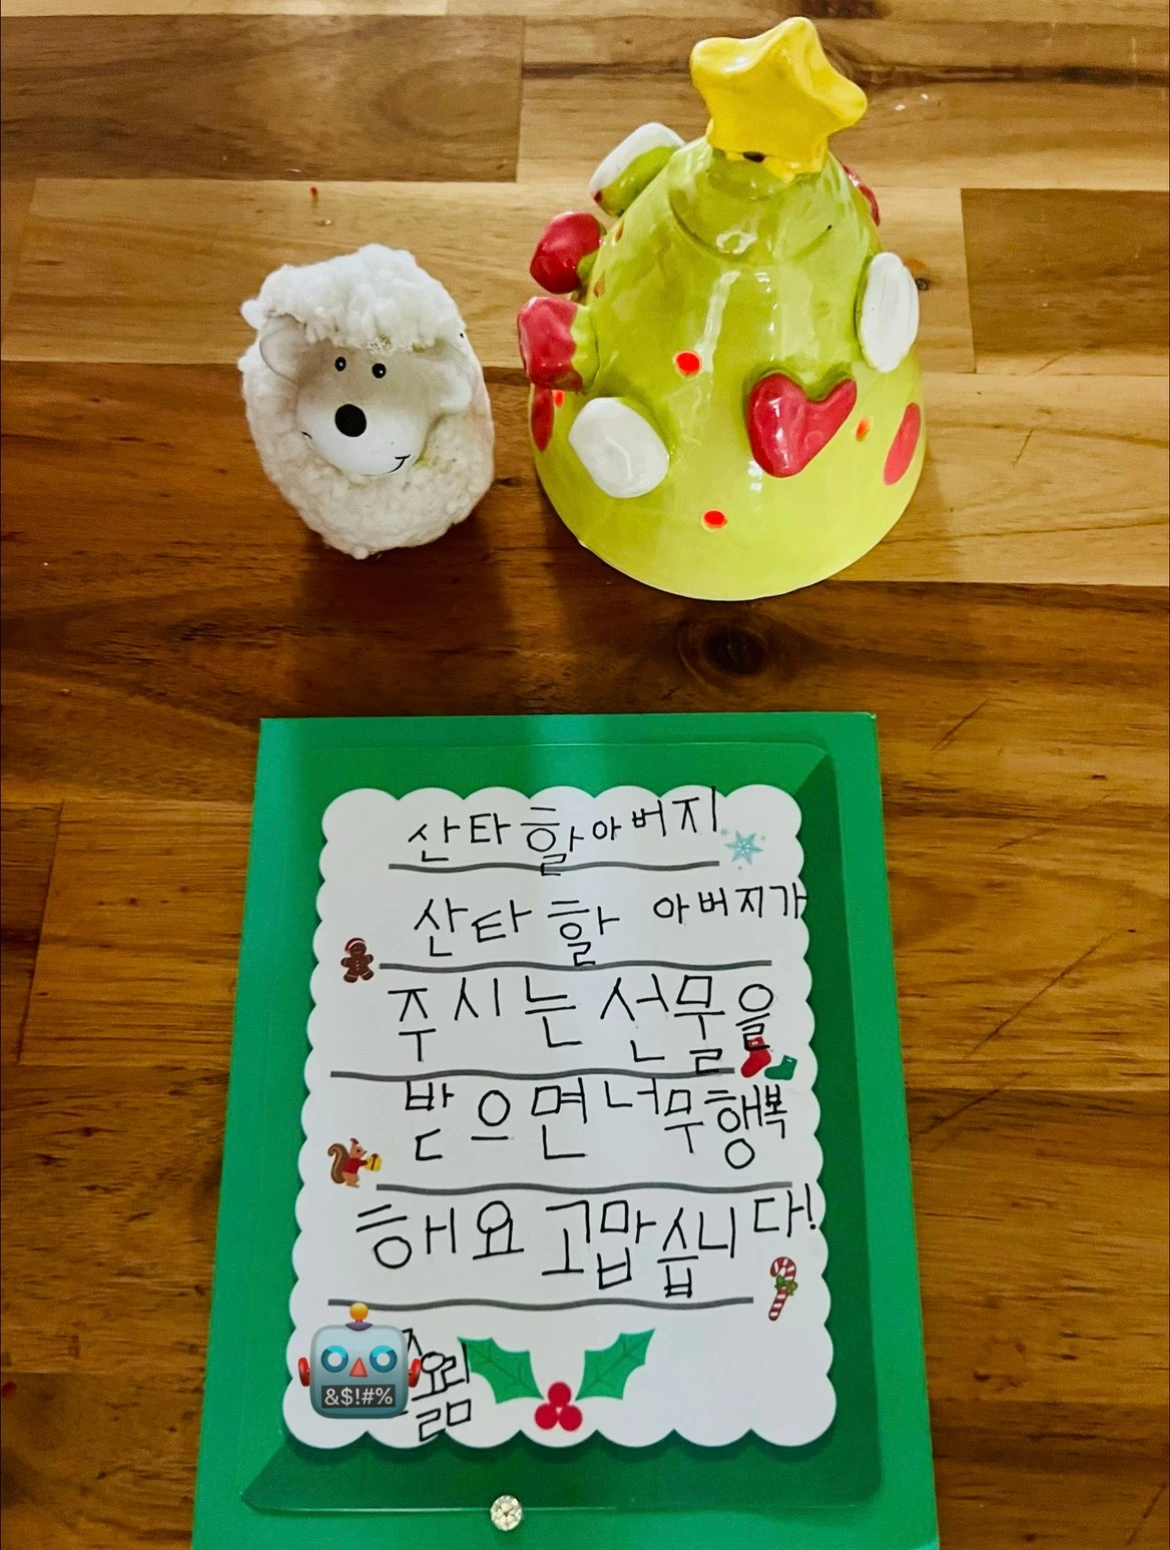 산타할아버지
산타할 아버지가
주시는 선물을
받으면 너무행복
해요 고맙습니다!
&$!#%